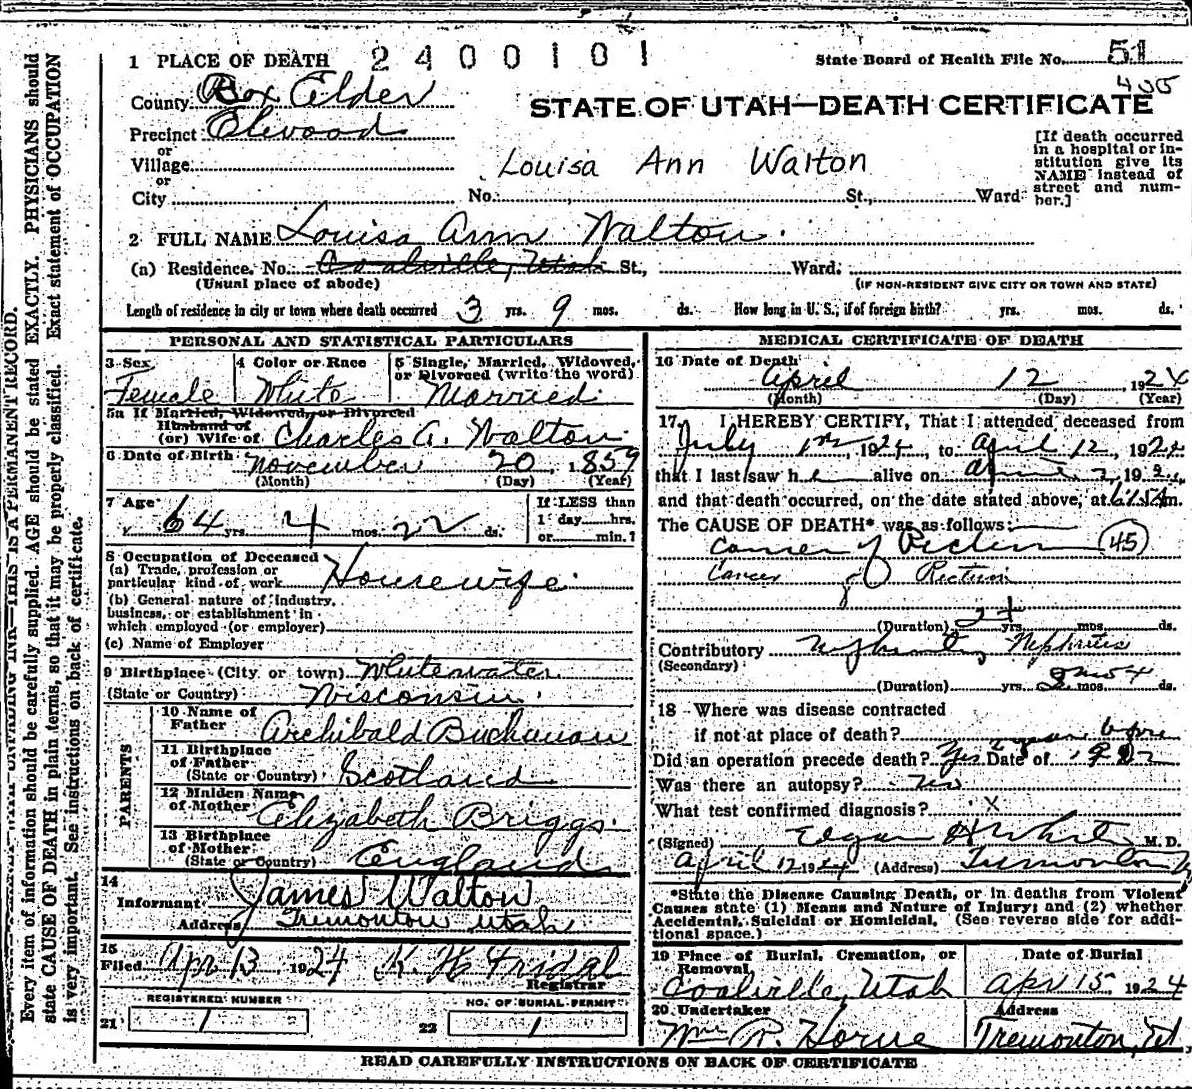 1 PLACE OF DEATH 2400101 State Board of Health File No. 51
County Box Elder
STATE OF UTAH—DEATH CERTIFICATE
Precinct Elwood
or
Village
or
City
Louisa Ann Walton
No. St., Ward
[If death occurred
in a hospital or in-
stitution give its
NAME instead of
street and num-
ber.]
2 FULL NAME Louisa Ann Walton
(a) Residence. No. Coalville, Utah St., Ward.
(Usual place of abode) (IF NON-RESIDENT GIVE CITY OR TOWN AND STATE)
Length of residence in city or town where death occurred 3 yrs. 9 mos. ds. How long in U. S., if of foreign birth? yrs. mos. ds.
PERSONAL AND STATISTICAL PARTICULARS
3 Sex 4 Color or Race 5 Single, Married, Widowed,
or Divorced (write the word)
Female White Married
5a If Married, Widowed, or Divorced
Husband of
(or) Wife of Charles A. Walton
6 Date of Birth November 20, 1859
(Month) (Day) (Year)
7 Age If LESS than
64 yrs. 4 mos. 22 ds. 1 day hrs.
or min.?
8 Occupation of Deceased
(a) Trade, profession or
particular kind of work Housewife
(b) General nature of industry,
business, or establishment in
which employed (or employer)
(c) Name of Employer
9 Birthplace (City or town) Whitewater
(State or Country) Wisconsin
PARENTS
10 Name of
Father Archibald Buchanan
11 Birthplace
of Father
(State or Country) Scotland
12 Maiden Name
of Mother Elizabeth Briggs
13 Birthplace
of Mother
(State or Country) England
14
Informant James Walton
Address Tremonton Utah
15
Filed Apr 13 1924 K. H. Fridal
Registrar
REGISTERED NUMBER NO. OF BURIAL PERMIT
21 1 22 1
MEDICAL CERTIFICATE OF DEATH
16 Date of Death
April 12, 1924
(Month) (Day) (Year)
17 I HEREBY CERTIFY, That I attended deceased from
July 1924, to April 12, 1924
that I last saw h alive on April 192
and that death occurred, on the date stated above, at m.
The CAUSE OF DEATH* was as follows:
Cancer of Rectum 45
Cancer of Rectum
(Duration) 2+ yrs. mos. ds.
Contributory Nephritis Nephritis
(Secondary)
(Duration) yrs. mos. ds.
18 Where was disease contracted
if not at place of death?
Did an operation precede death? Yes Date of
Was there an autopsy? No
What test confirmed diagnosis? X
(Signed) Edgar H White M. D.
April 12 1924 (Address) Tremonton
*State the Disease Causing Death, or in deaths from Violent
Causes state (1) Means and Nature of Injury; and (2) whether
Accidental, Suicidal or Homicidal. (See reverse side for addi-
tional space.)
19 Place of Burial, Cremation, or Date of Burial
Removal
Coalville, Utah Apr 15, 1924
20 Undertaker Address
Wm R. Horne Tremonton, Ut.
READ CAREFULLY INSTRUCTIONS ON BACK OF CERTIFICATE
THIS IS A PERMANENT RECORD.
Every item of information should be carefully supplied. AGE should be stated EXACTLY. PHYSICIANS should
state CAUSE OF DEATH in plain terms, so that it may be properly classified. Exact statement of OCCUPATION
is very important. See instructions on back of certificate.